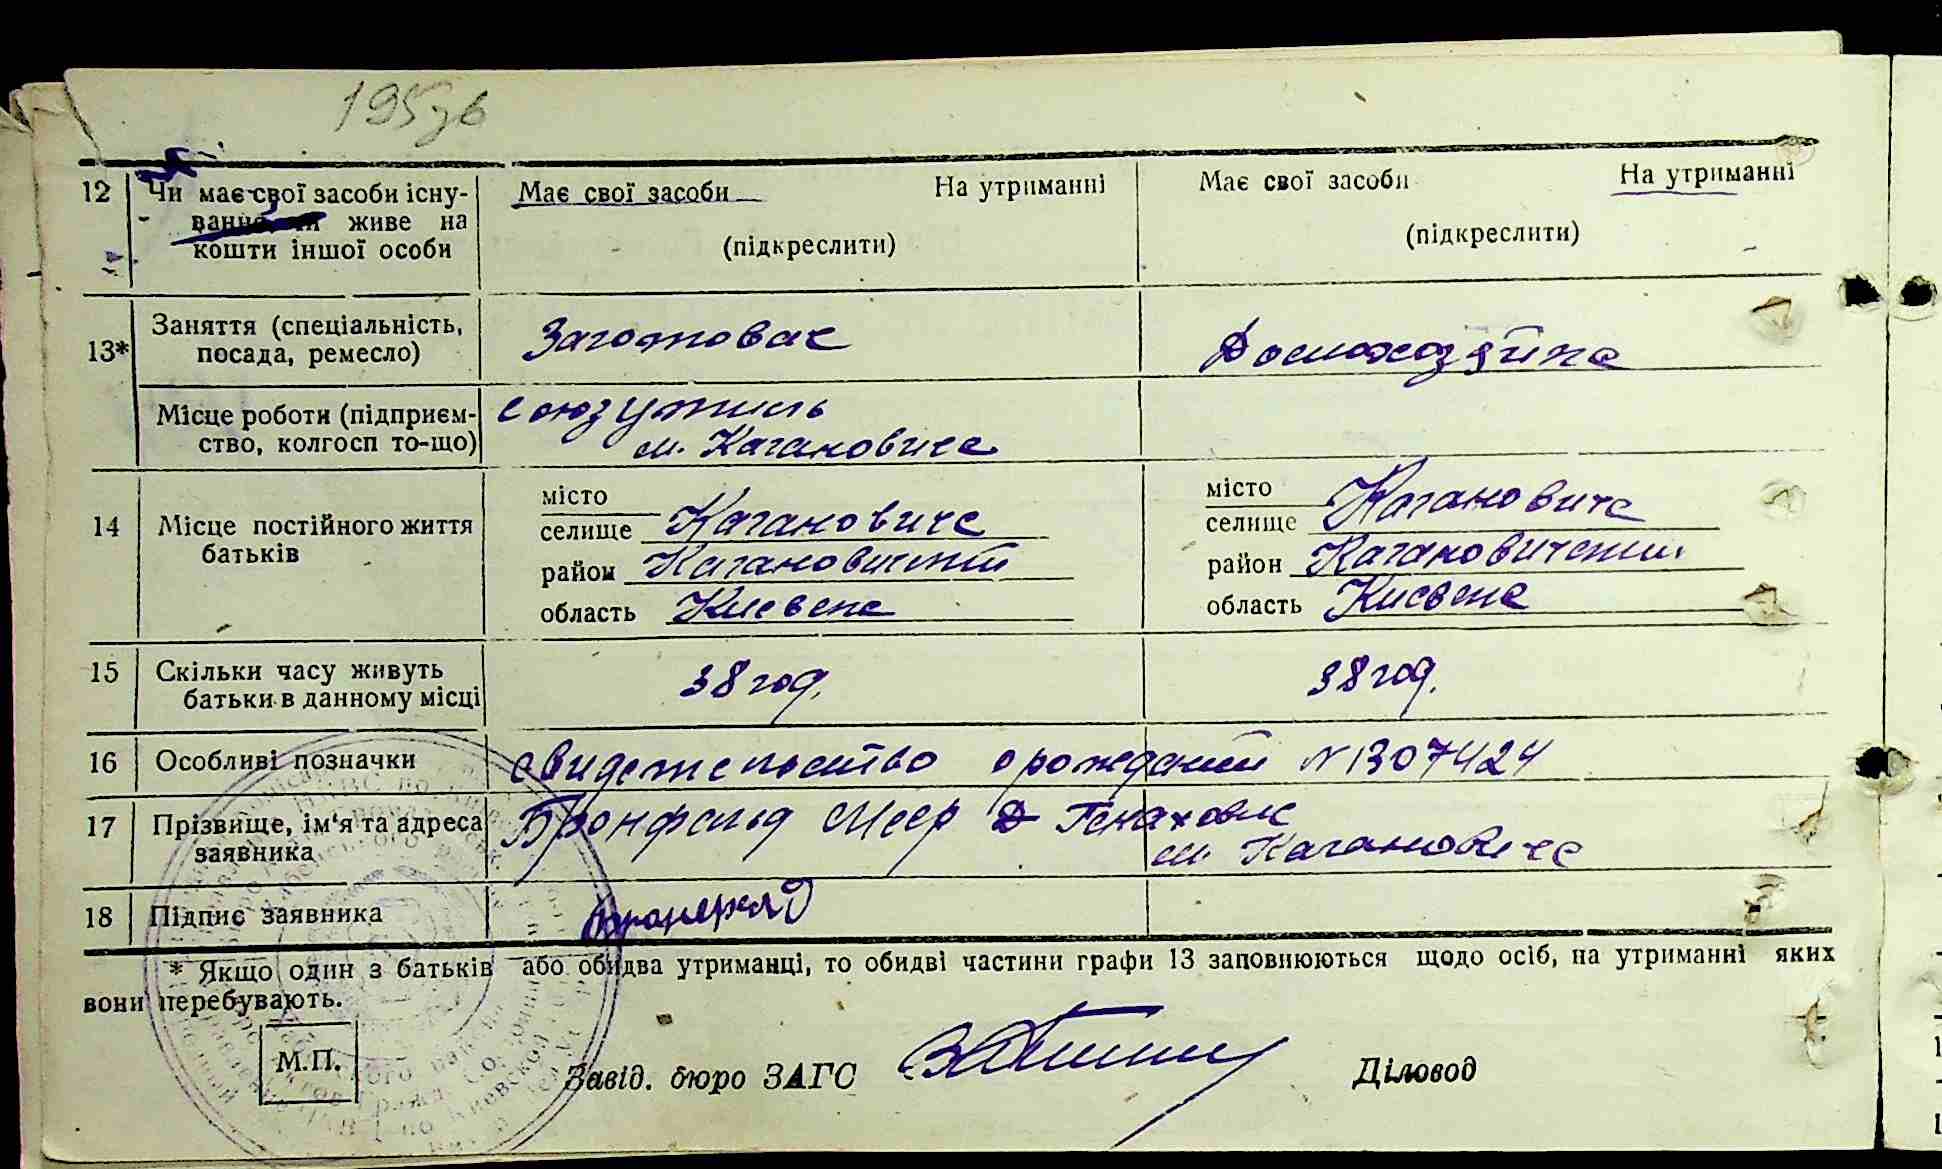 195зв
12 Чи має свої засоби існу- Має свої засоби На утриманні Має свої засоби На утриманні
вання, чи живе на
кошти іншої особи (підкреслити) (підкреслити)
13* Заняття (спеціальність, Заготовач Домохозяйка
посада, ремесло)
Місце роботи (підприєм- Союзутиль
ство, колгосп то-що) м. Кагановича
14 Місце постійного життя місто місто
батьків селище Кагановича селище Кагановича
район Кагановичский район Кагановичский
область Киевска область Киевска
15 Скільки часу живуть 38 год. 38 год.
батьки в данному місці
16 Особливі позначки свидетельство о рождении № 1307424
17 Прізвище, ім'я та адреса Бронфельд Меер Генахович
заявника м. Кагановиче
18 Підпис заявника Бронфельд
* Якщо один з батьків або обидва утриманці, то обидві частини графи 13 заповнюються щодо осіб, на утриманні яких
вони перебувають.
М.П. Завід. бюро ЗАГС Діловод